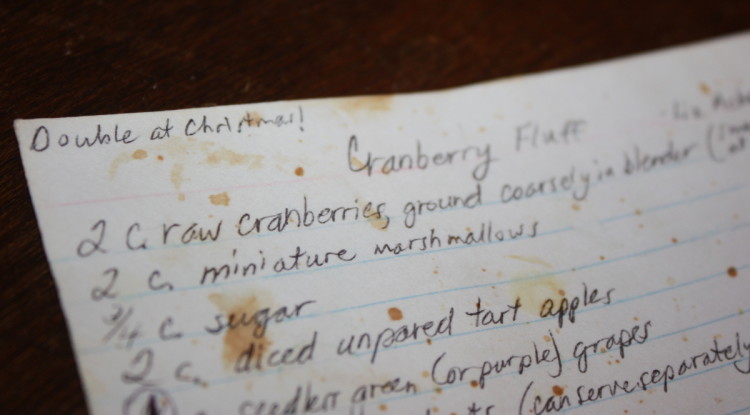 Double at Christmas!
Cranberry Fluff
2 c. raw cranberries, ground coarsely in blender (
2 c. miniature marshmallows
3/4 c sugar
2 c. diced unpared tart apples
seedless green (or purple) grapes
(can serve separately